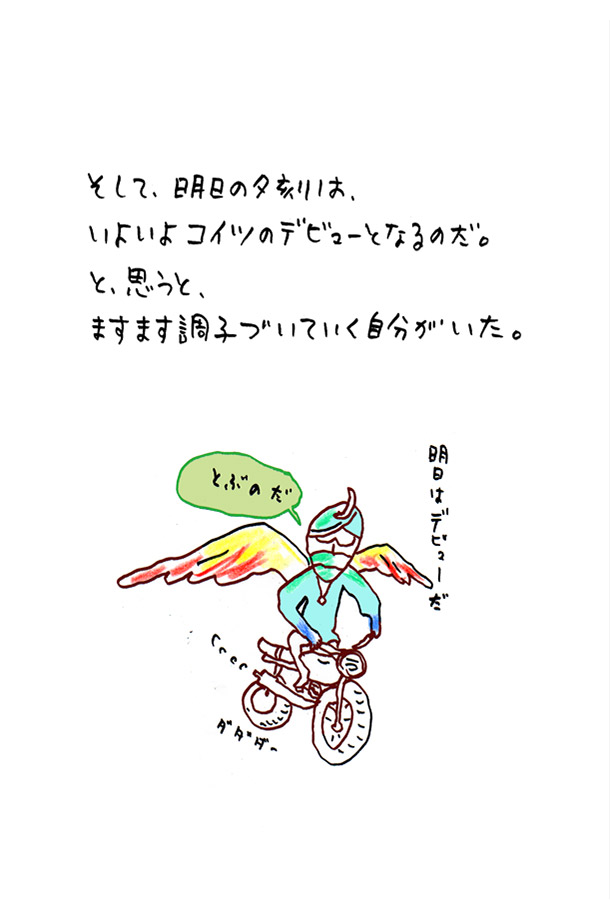 そして、明日の夕刻は、
いよいよコイツのデビューとなるのだ。
と、思うと、
ますます調子づいていく自分がいた。
明日はデビューだ
とぶのだ
ダダダー